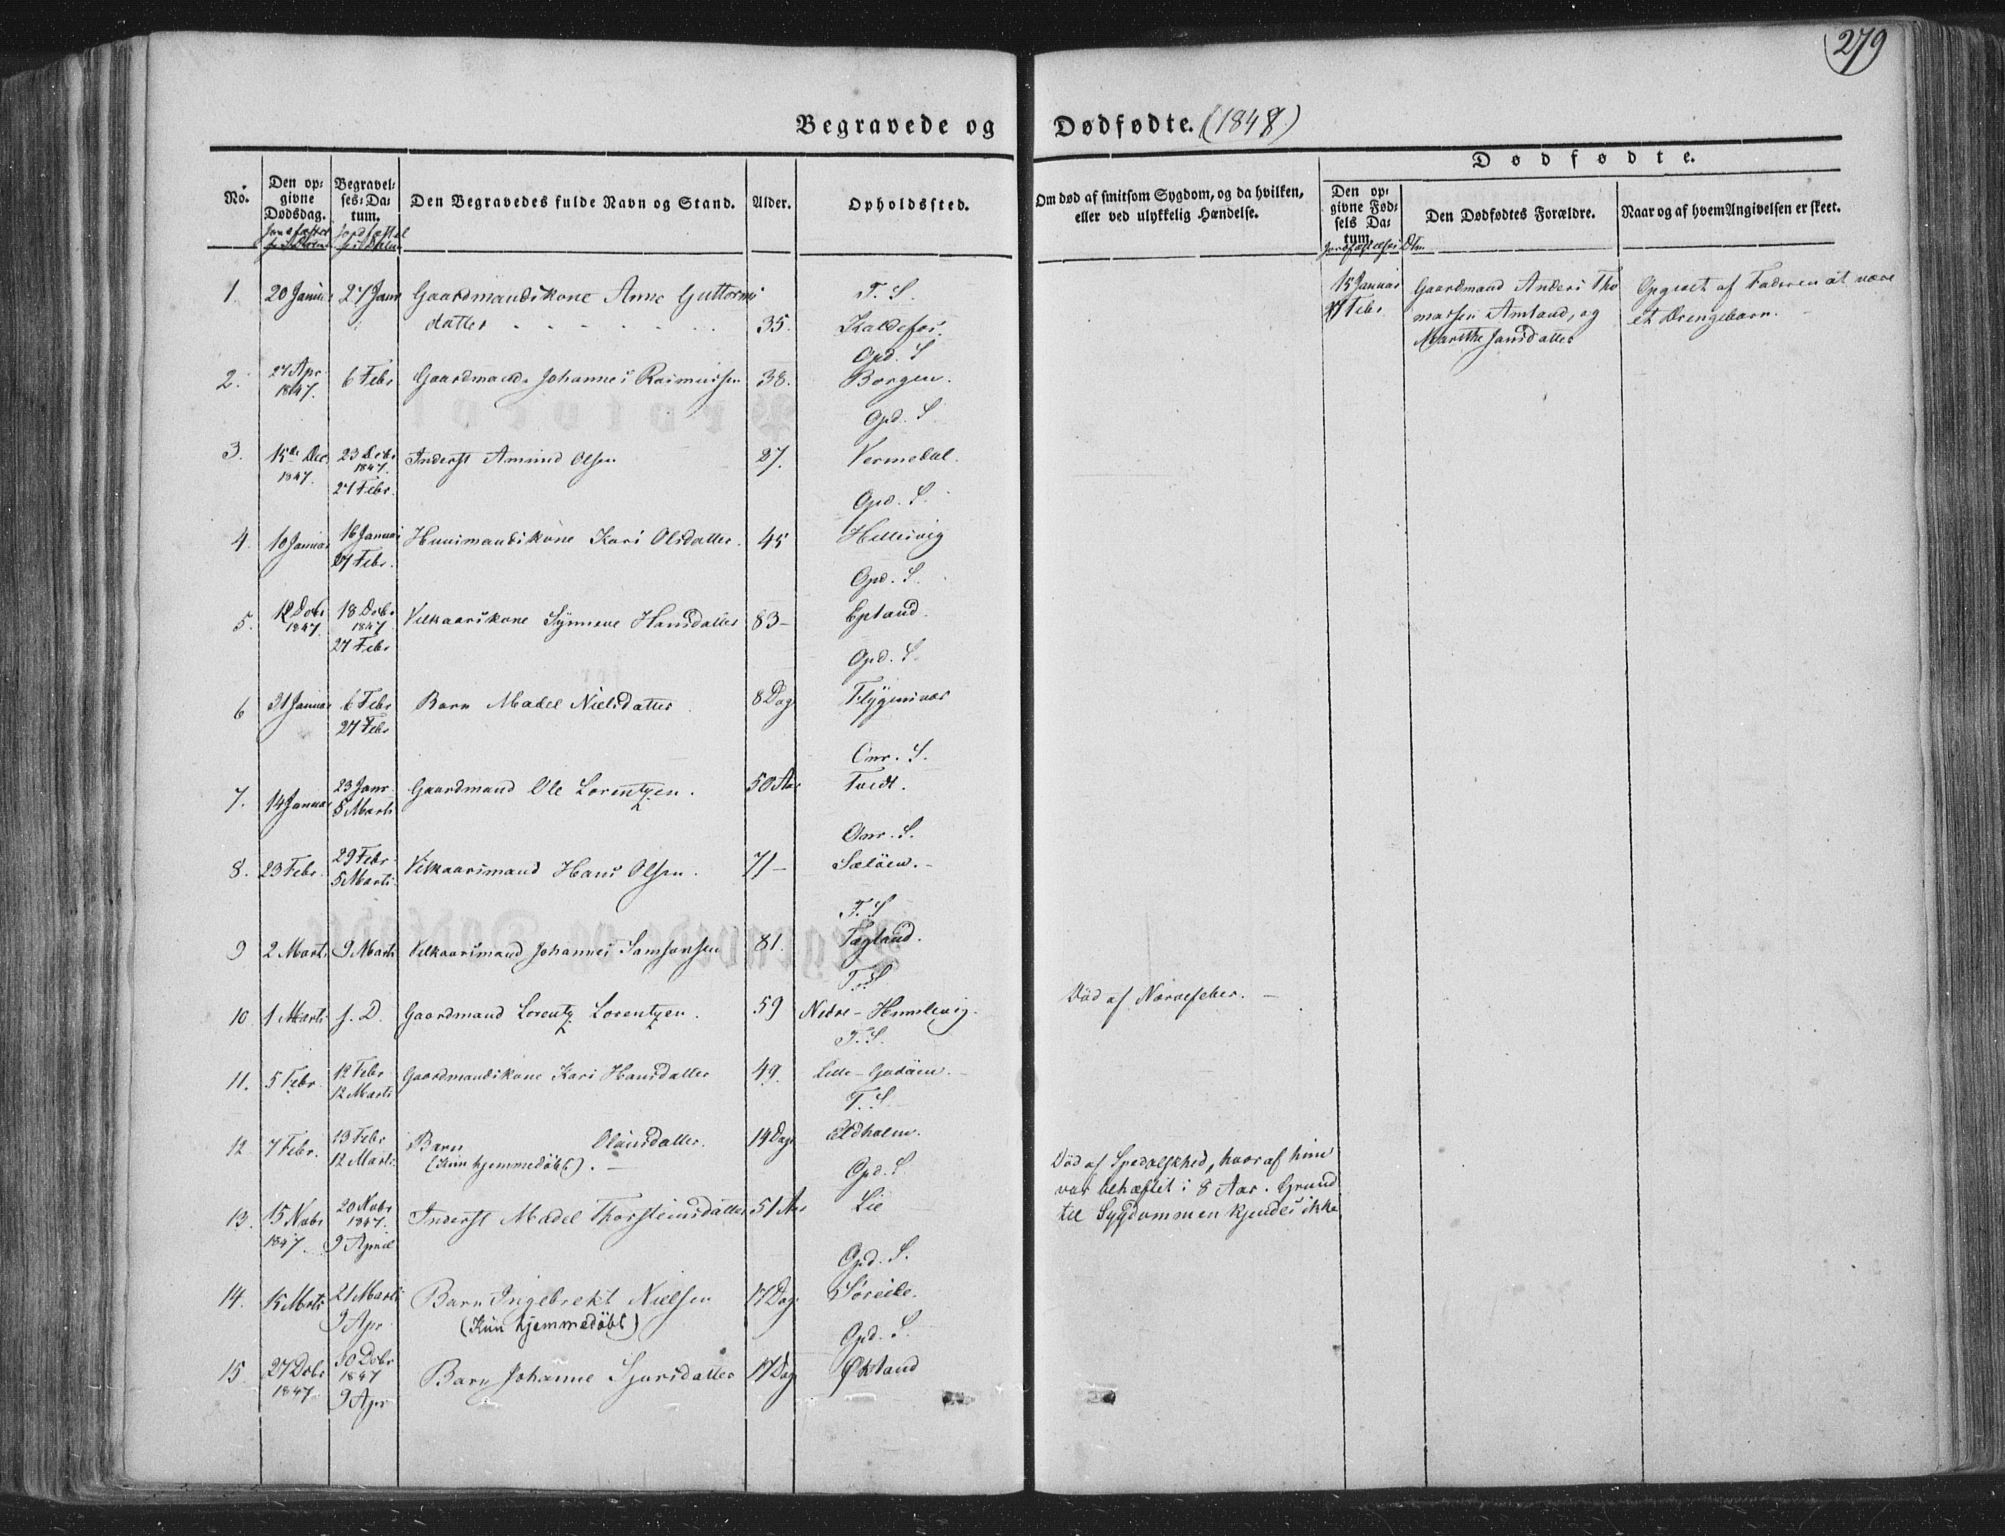 279
Begravede og Dødfødte. (1848)
Dødfødte.
No.
Den op-
givne
Dødsdag.
Begravel-
ses-Da-
tum.
Den Begravedes fulde Navn og Stand.
Alder.
Opholdssted.
Om død af smitsom Sygdom, og da hvilken,
eller ved ulykkelig Hændelse.
Den op-
givne Fød-
sels Da-
tum.
Den Dødfødtes Forældre.
Naar og af hvem Angivelsen er skeet.
1. 20 Januar 27 Janr Gaardmandskone Anne Guttorms T. S.
datter 35. Kaldefos.
15 Januar Gaardmand Anders Tho Opgivet af Faderen at være
27 Febr. massen Amland, og et Drengebarn.
Marithe Jansdatter
Opd. S
2. 27 Apr 6 Febr Gaardmand Johannes Rasmussen 38. Borgen.
1847.
Opd. S
3. 15de Dec 23 Decbr Inderst Amund Olsen 27. Vermedal.
1847. 1847.
27 Febr.
Opd. S.
4. 10 Januar 16 Januar Huusmandskone Kari Olsdatter. 45 Hillesvig
27 Febr.
Opd. S.
5. 12 Decbr 18 Decbr Vilkaarskone Synneve Hansdatter 83 – Epland.
1847. 1847.
27 Febr
Opd. S.
6 31 Januar 6 Febr Barn Madel Nielsdatter 8 Dage Flygensvær
27 Febr
Onr. S.
7. 14 Januar 23 Janr. Gaardmand Ole Lorentzen. 50 Aar Tvedt.
5 Marts
Onr. S.
8. 23 Febr. 29 Febr. Vilkaarsmand Hans Olsen. 71 – Seløen. –
5 Marts
T. S
9 2 Marts 9 Marts Vilkaarsmand Johannes Samsonsen 81. Fagland.
T. S
10 1 Marts s. D. Gaardmand Lorentz Lorentzen. 59 Nedre – Humlevig.
Død af Nervefeber. –
T. S.
11. 5 Febr. 12 Febr Gaardmandskone Kari Hansdatter 49. Lille – Godøen. –
12 Marts
T. S
12 7 Febr. 13 Febr Barn Olausdatter. 14 Dage Eldholm.
12 Marts (Kun hjemmedøbt). –
Opd. S
13. 15 Novbr 20 Novbr Inderst Madel Thorsteinsdatter 51 Aar Lie
1847. 1847.
9 April
Død af Spedalskhed, hvoraf hun
var behæftet i 8 Aar. Grund
til Sygdommen kjendes ikke
Opd. S.
14. 15 Marts 21 Marts Barn Ingebrekt Nielsen 17 Dage Søreide.
9 Apr (Kun hjemmedøbt)
Opd. S.
15. 27 Decbr 30 Decbr Barn Johanne Sjursdatter 17 Dage Økland
1847. 1847
9 Apr